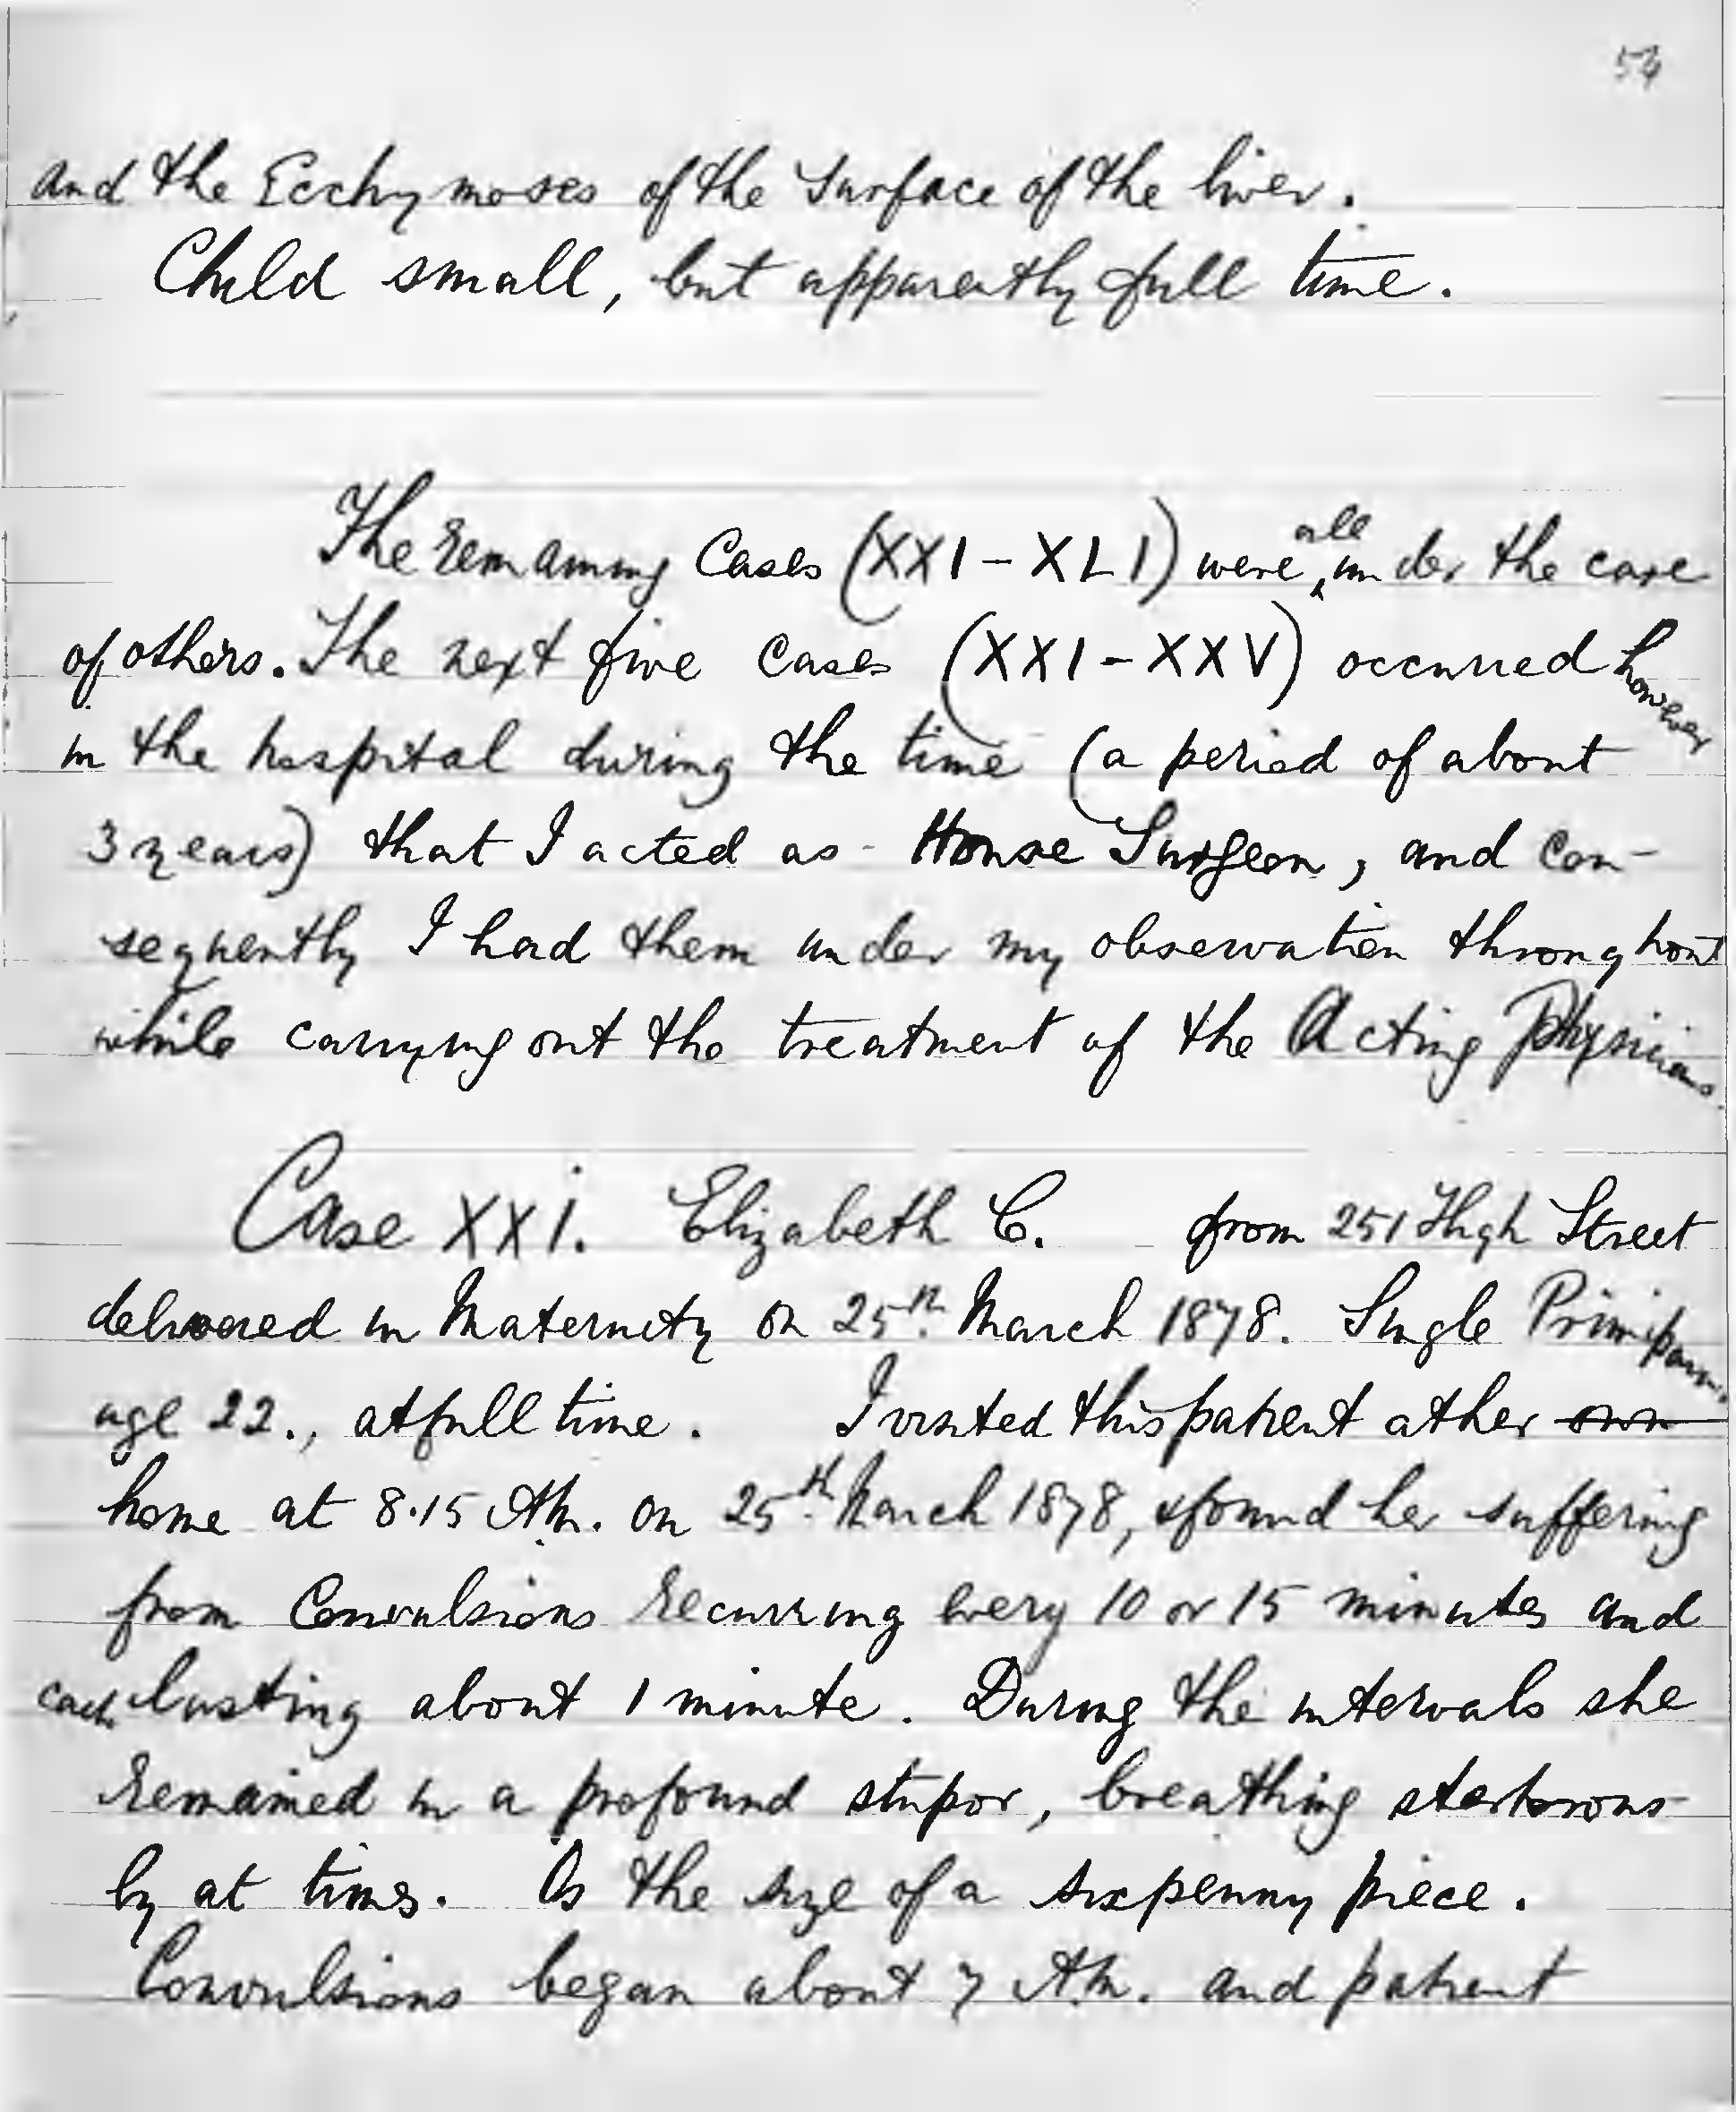 54
and the Ecchymoses of the surface of the liver.
Child small, but apparently full time.
The remaining Cases (XXI - XLI) were all under the care
of others. The next five cases (XXI - XXV) occurred however
in the hospital during the time (a period of about
3 years) that I acted as House Surgeon, and con-
sequently I had them under my observation throughout
while carrying out the treatment of the Acting Physicians.
Case XXI. Elizabeth C. from 251 High Street
delivered in Maternity on 25th March 1878. Single Primipara
age 22., at full time. I visited this patient at her own
home at 8.15 A.m. on 25th March 1878, & found her suffering
from Convulsions recurring every 10 or 15 minutes and
each lasting about 1 minute. During the intervals she
remained in a profound stupor, breathing stertorous
ly at times. Os the size of a sixpenny piece.
Convulsions began about 7 A.m. and patient